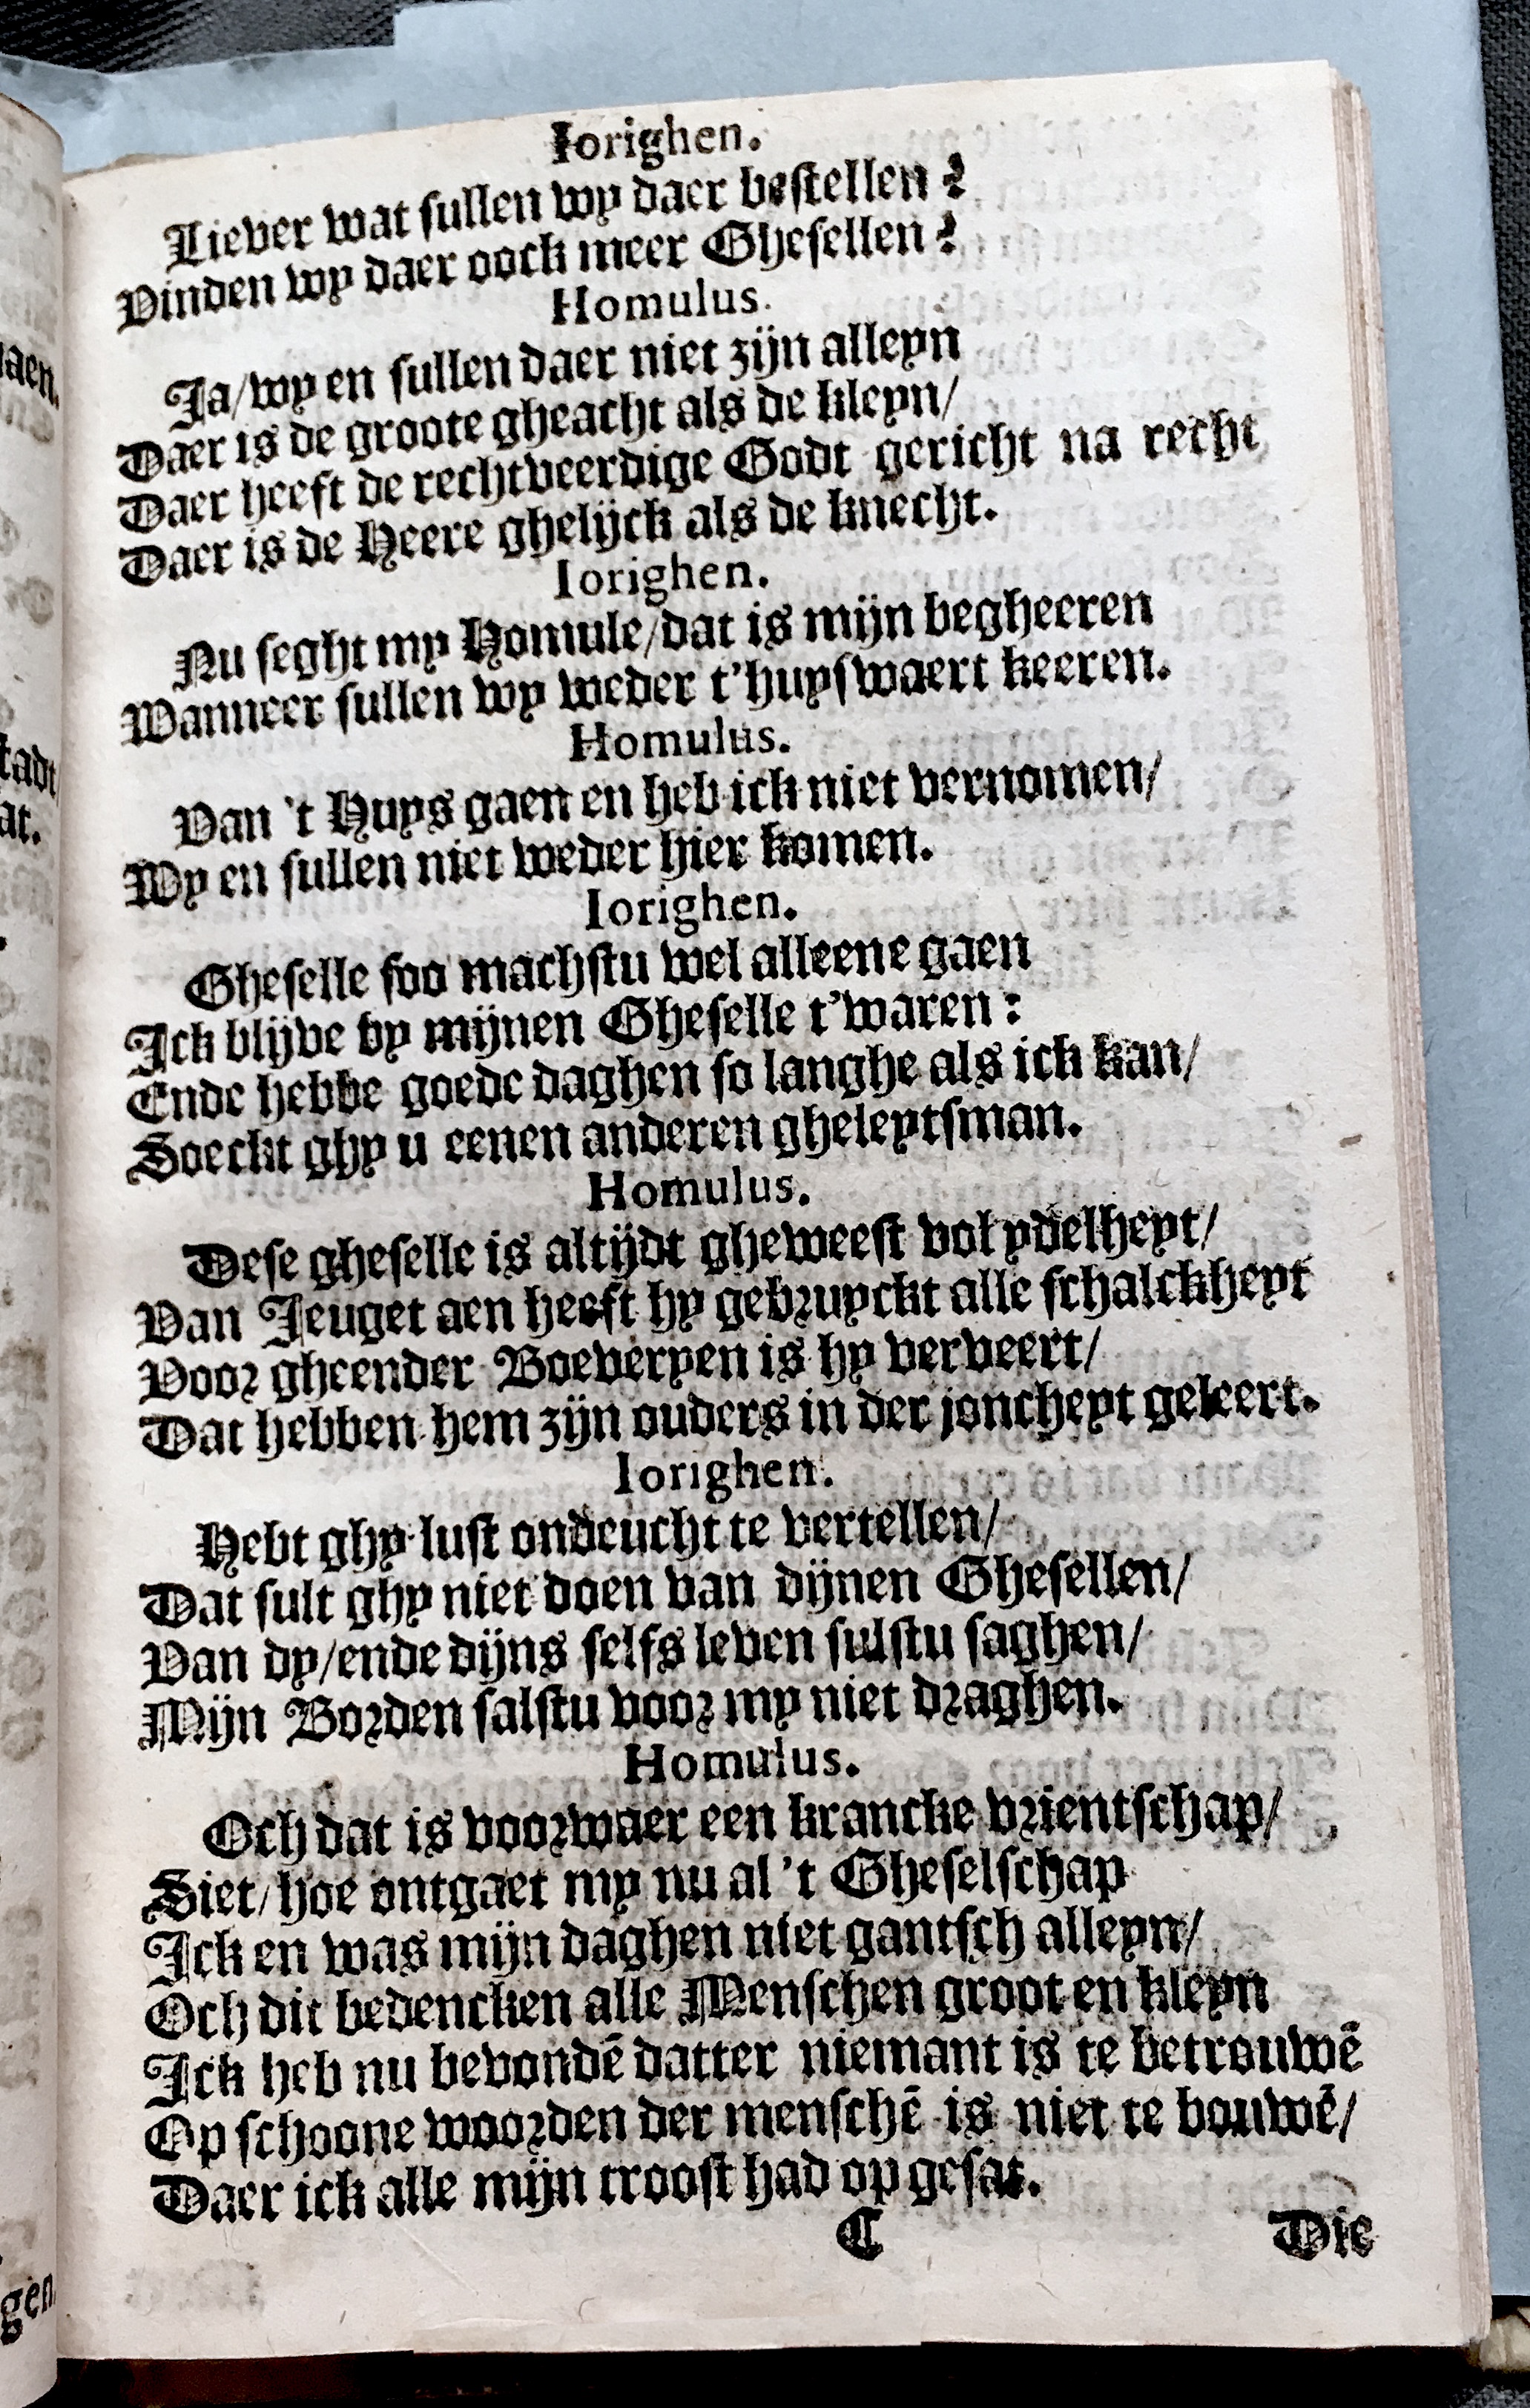 Iorighen.
Liever wat sullen wy daer bestellen?
Vinden wy daer oock meer Ghesellen?
Homulus.
Ja/wy en sullen daer niet zijn alleyn
Daer is de groote gheacht als de kleyn/
Daer heeft de rechtveerdige Godt gericht na recht
Daer is de Heere ghelijck als de knecht.
Iorighen.
Nu seght my Homule/dat is mijn begheeren
Wanneer sullen wy weder t'huyswaert keeren.
Homulus.
Van 't Huys gaen en heb ick niet vernomen/
Wy en sullen niet weder hier komen.
Iorighen.
Gheselle soo machstu wel alleene gaen
Ick blijve by mijnen Gheselle t'waren:
Ende hebbe goede daghen so langhe als ick kan/
Soeckt ghy u eenen anderen gheleytsman.
Homulus.
Dese gheselle is altijdt gheweest vol ydelheyt/
Van Jeuget aen heeft hy gebruyckt alle schalckheyt
Voor gheender Boeveryen is hy verveert/
Dat hebben hem zijn ouders in der joncheyt geleert.
Iorighen.
Hebt ghy lust ondeucht te vertellen/
Dat sult ghy niet doen van dijnen Ghesellen/
Van dy/ende dijns selfs leven sulstu saghen/
Mijn Borden salstu voor my niet draghen.
Homulus.
Och dat is voorwaer een krancke vrientschap/
Siet/hoe ontgaet my nu al 't Gheselschap
Ick en was mijn daghen niet gantsch alleyn/
Och dit bedencken alle Menschen groot en kleyn
Ick heb nu bevondē datter niemant is te betrouwē
Op schoone woorden der menschē is niet te bouwē/
Daer ick alle mijn troost had op gesat.
C
Die
aen.
tadt
at.
gen